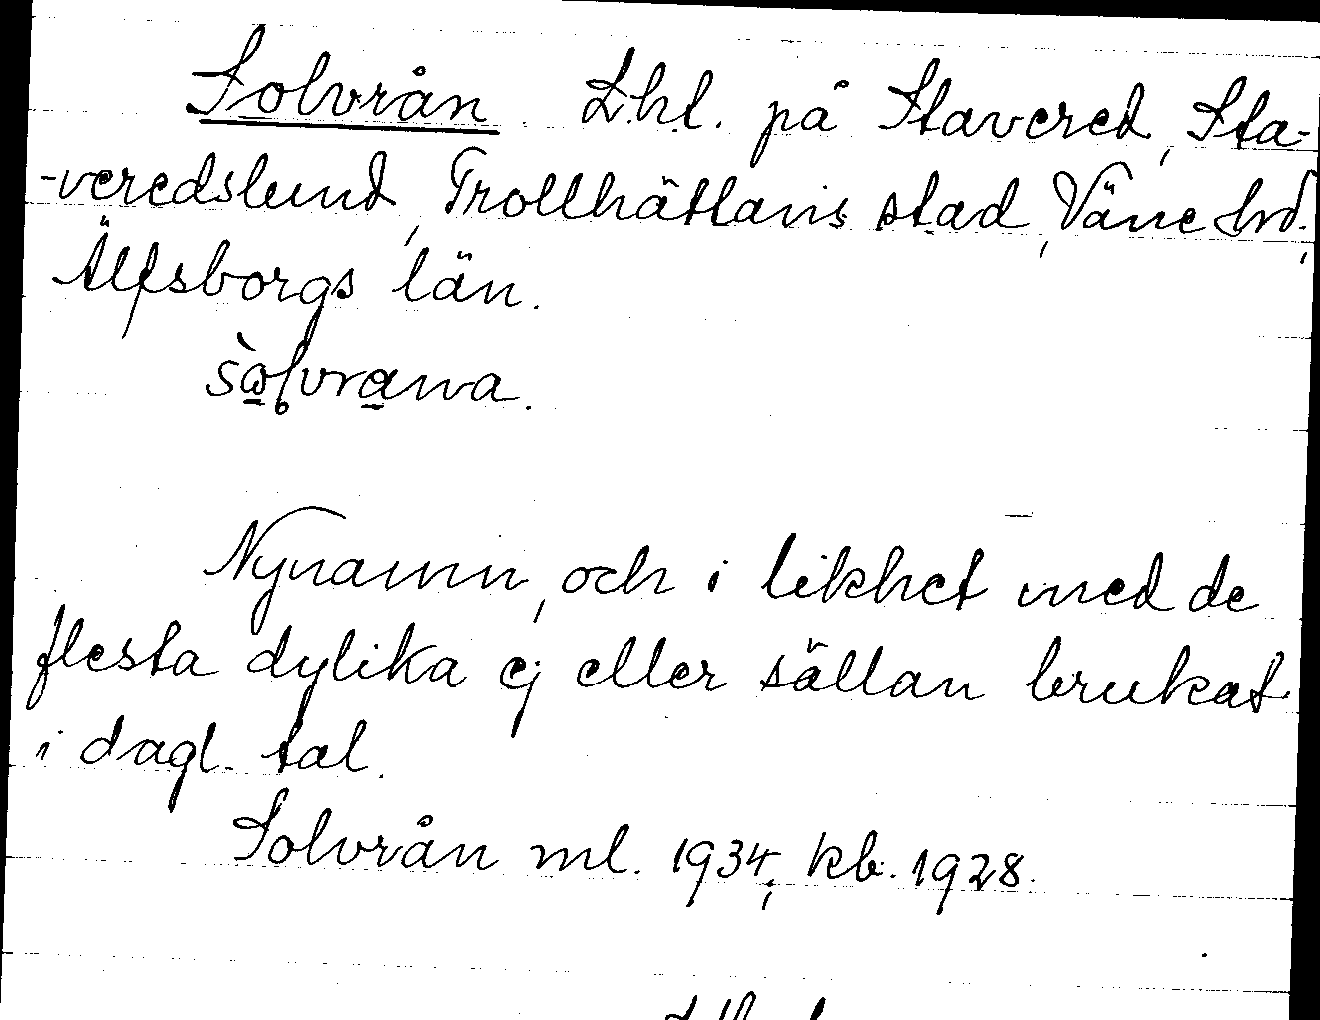 Solvrån. Lht. på Stavered, Sta-
-veredslund, Trollhättans stad, Väne hd.,
Älfsborgs län.
Nynamn, och i likhet med de
flesta dylika ej eller sällan brukat
i dagl. tal.
Solvrån ml. 1934; kb. 1928.